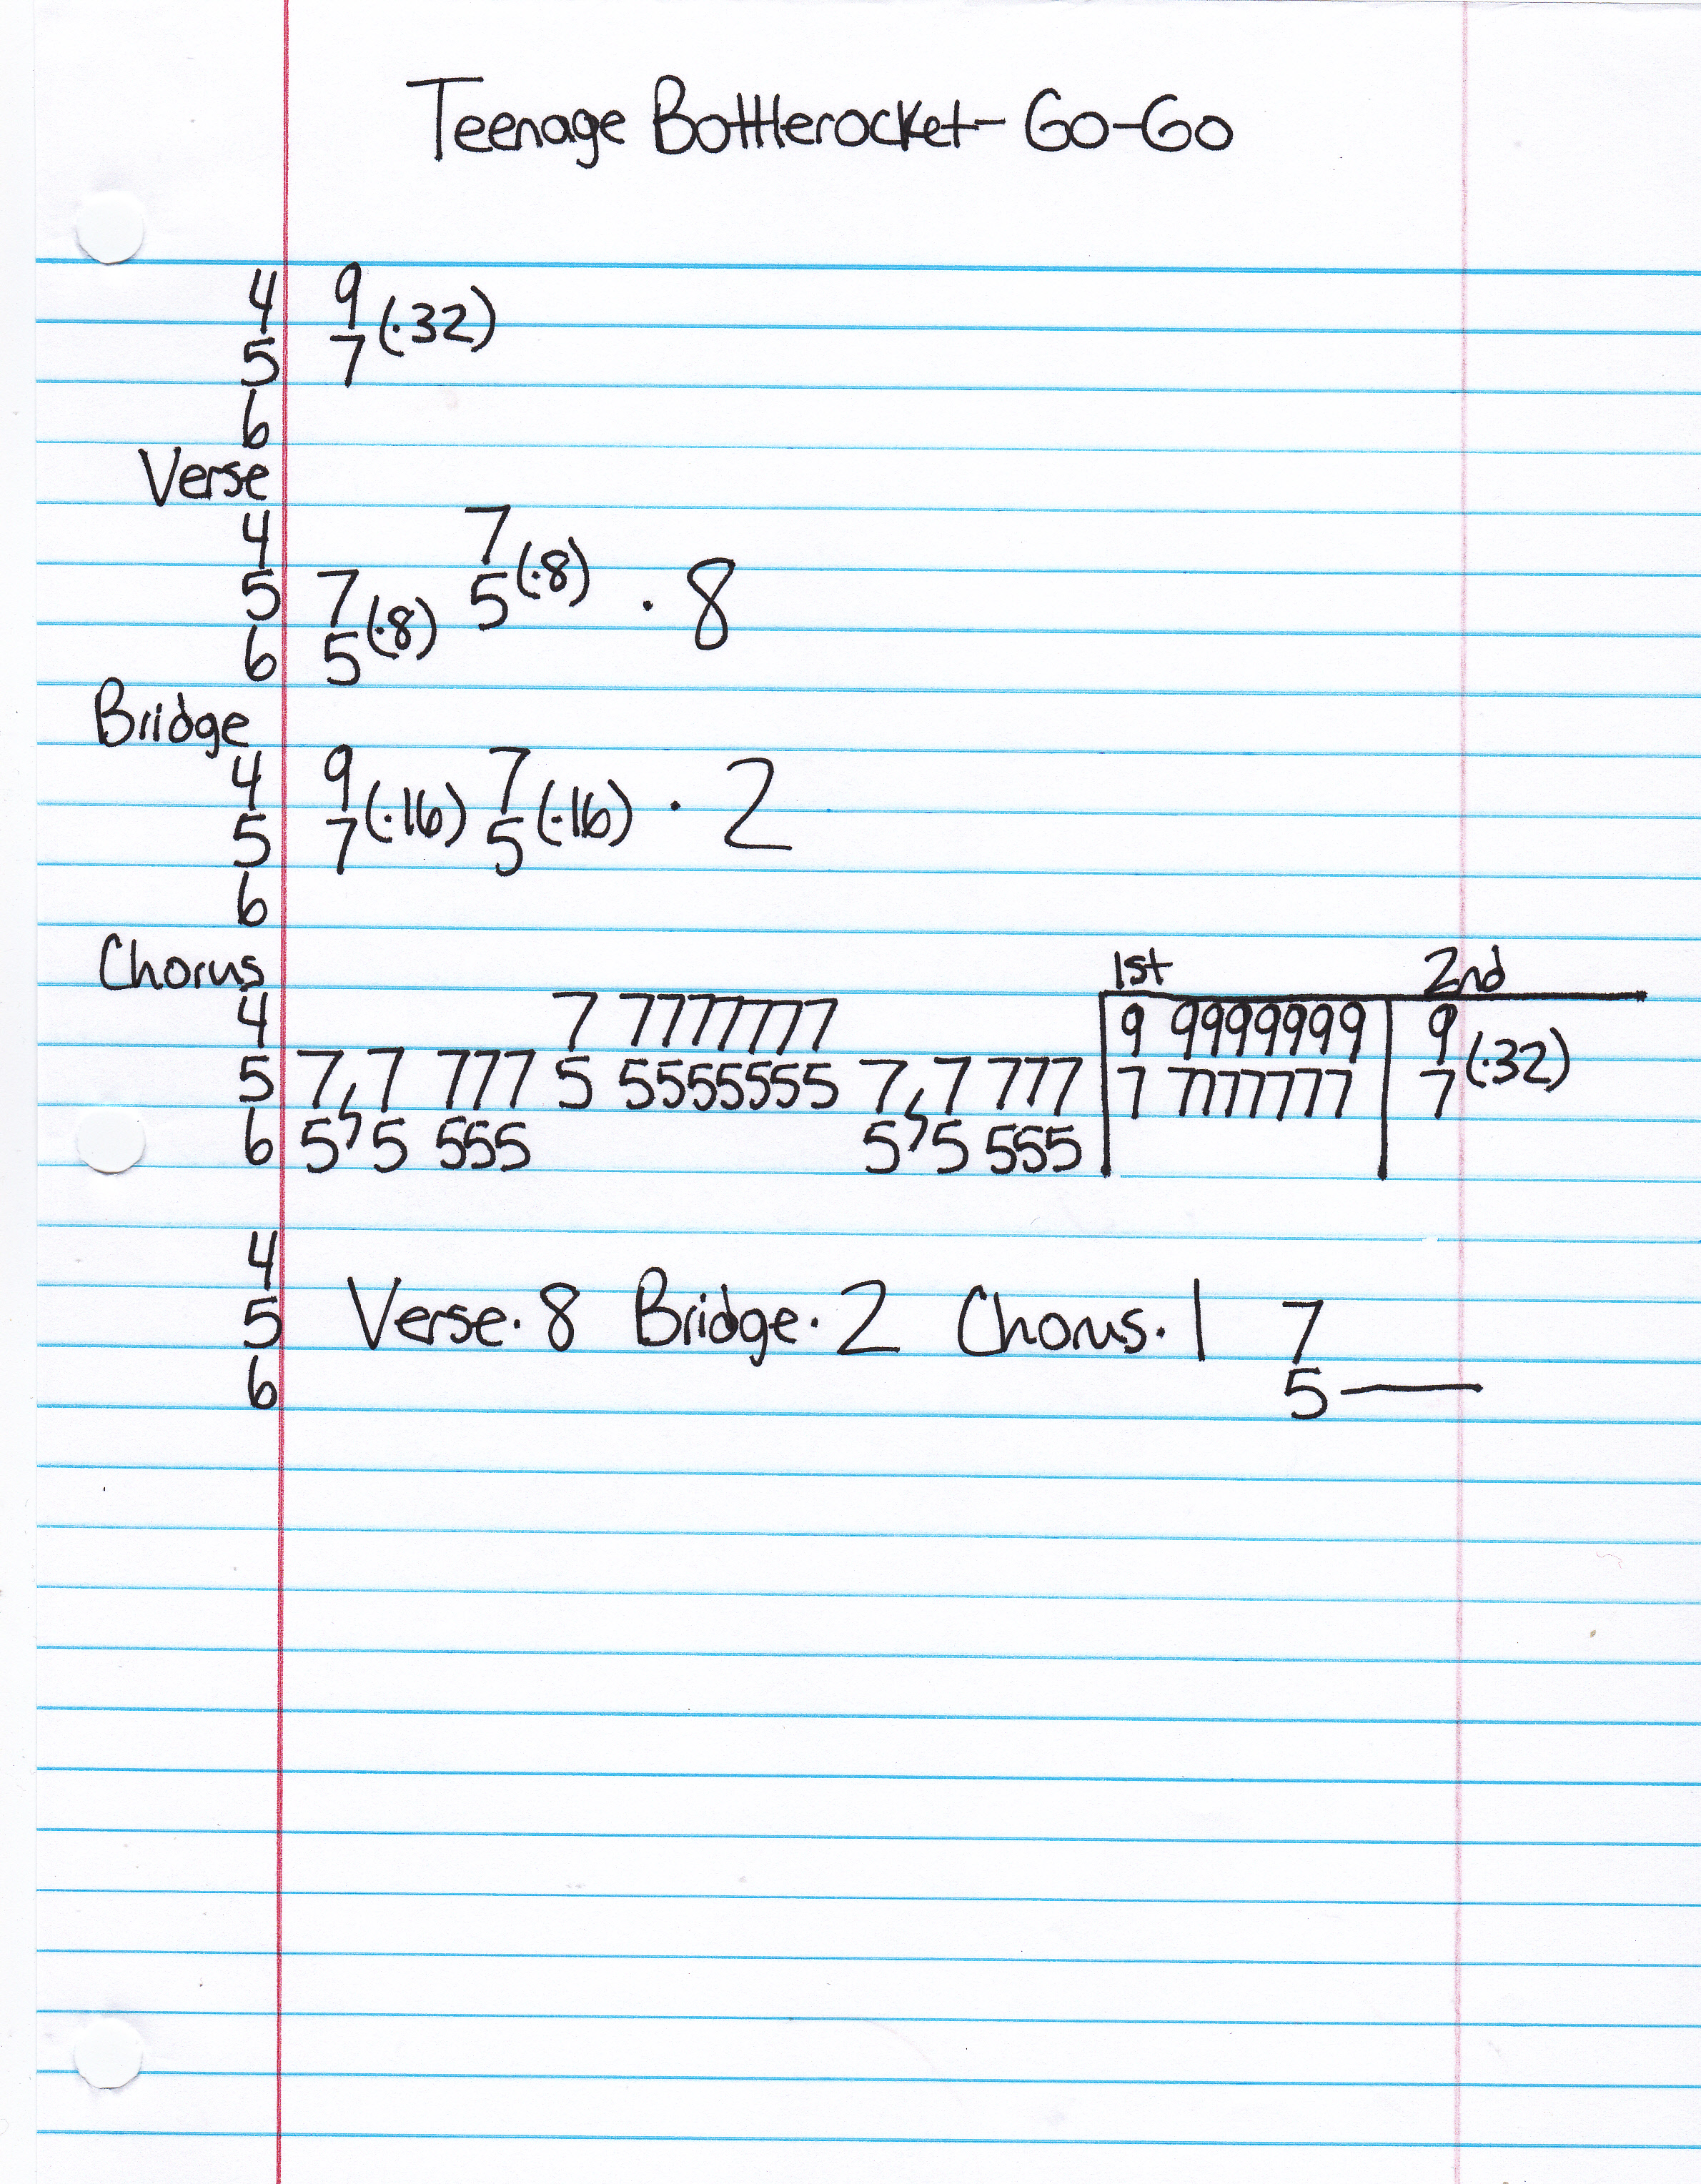 Teenage Bottlerocket- Go-Go
4 9
5 7 (·32)
6
Verse
4 7
5 7 5 (·8) · 8
6 5 (·8)
Bridge
4 9 7
5 7 (·16) 5 (·16) · 2
6
Chorus 1st 2nd
4 7 7777777 9 9999999 9
5 7, 7 777 5 5555555 7, 7 777 7 7777777 7 (·32)
6 5 7 5 555 5 7 5 555
4
5 Verse · 8 Bridge · 2 Chorus · 1 7
6 5 —